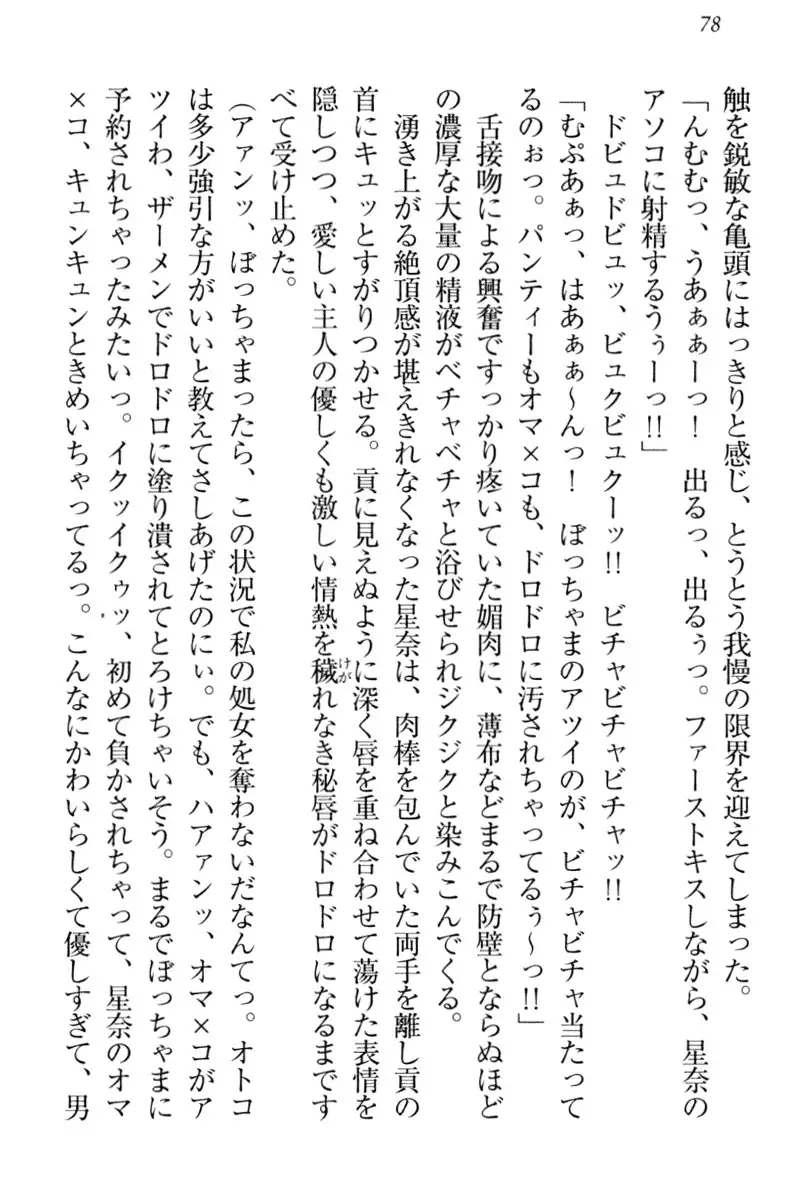 78
触を鋭敏な亀頭にはっきりと感じ、とうとう我慢の限界を迎えてしまった。
「んむむっ、うあぁぁーっ！　出るっ、出るぅっ。ファーストキスしながら、星奈の
アソコに射精するうぅーっ!!」
　ドビュドビュッ、ビュクビュクーッ!!　ビチャビチャビチャッ!!
「むぷあぁっ、はあぁぁ〜んっ！　ぼっちゃまのアツイのが、ビチャビチャ当たって
るのぉっ。パンティーもオマ×コも、ドロドロに汚されちゃってるぅ〜っ!!」
　舌接吻による興奮ですっかり疼いていた媚肉に、薄布などまるで防壁とならぬほど
の濃厚な大量の精液がベチャベチャと浴びせられジクジクと染みこんでくる。
　湧き上がる絶頂感が堪えきれなくなった星奈は、肉棒を包んでいた両手を離し貢の
首にキュッとすがりつかせる。貢に見えぬように深く唇を重ね合わせて蕩けた表情を
隠しつつ、愛しい主人の優しくも激しい情熱を穢れなき秘唇がドロドロになるまです
べて受け止めた。
（アァンッ、ぼっちゃまったら、この状況で私の処女を奪わないだなんてっ。オトコ
は多少強引な方がいいと教えてさしあげたのにぃ。でも、ハアァンッ、オマ×コがア
ツイわ、ザーメンでドロドロに塗り潰されてとろけちゃいそう。まるでぼっちゃまに
予約されちゃったみたいっ。イクッイクゥッ、初めて負かされちゃって、星奈のオマ
×コ、キュンキュンときめいちゃってるっ。こんなにかわいらしくて優しすぎて、男